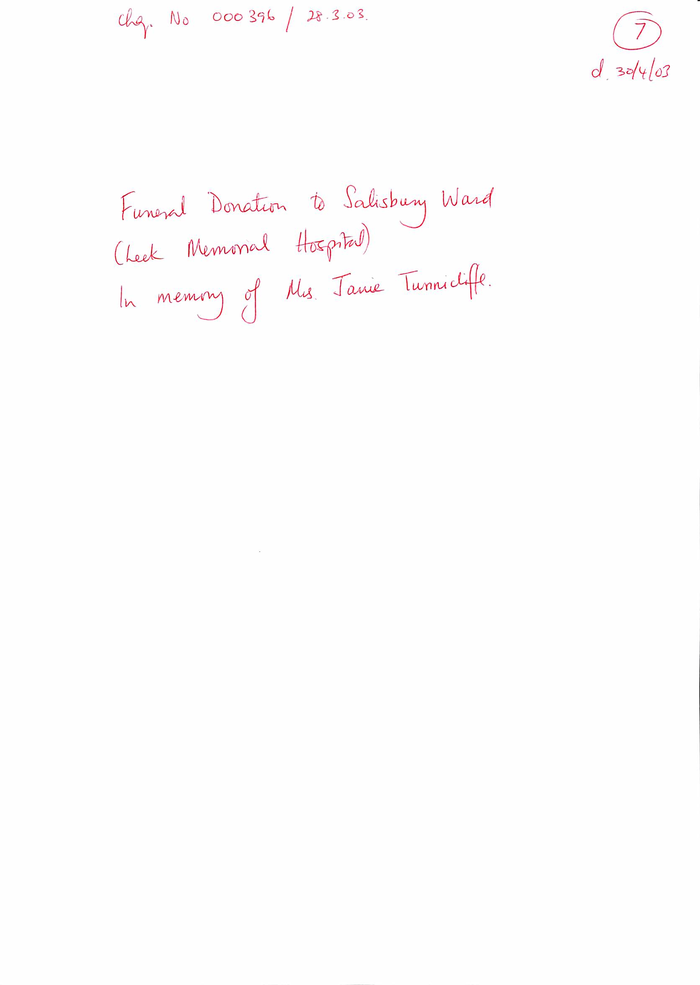 Chq. No 000396 / 28.3.03.
7
d. 30/4/03
Funeral Donation to Salisbury Ward
(Leek Memorial Hospital)
In memory of Mrs. Janie Tunnicliffe.